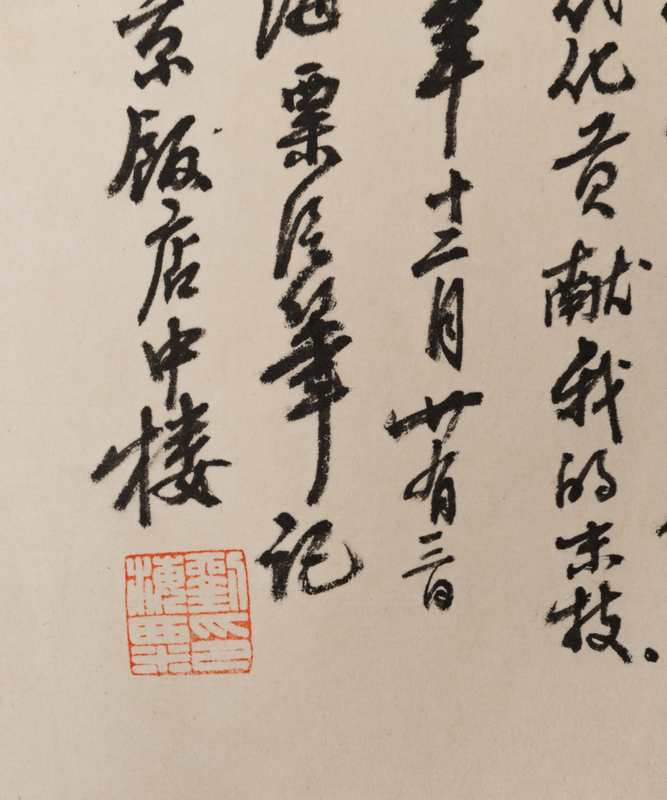 代化贡献我的末技。
年十二月廿有三日
海粟筆记
京飯店中楼
劉海粟印